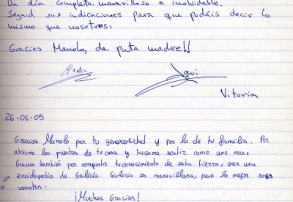 Un día completo, maravilloso e inolvidable.
Seguid sus indicaciones para que podáis decir lo
mismo que nosotros:
Gracias Manolo, de puta madre!!
Vitoria
26-06-05
Gracias Manolo por tu generosidad y por la de tu familia. Por
abrirnos las puertas de tu casa y hacernos sentir como uno más.
Gracias también por compartir tu conocimiento de esta tierra, eres una
enciclopedia de Galicia. Galicia es maravillosa, pero lo mejor sois
vosotros.
¡Muchas Gracias!